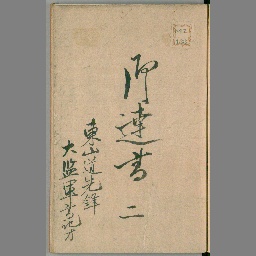 御達書 二
東山道先鋒
大監軍書記方